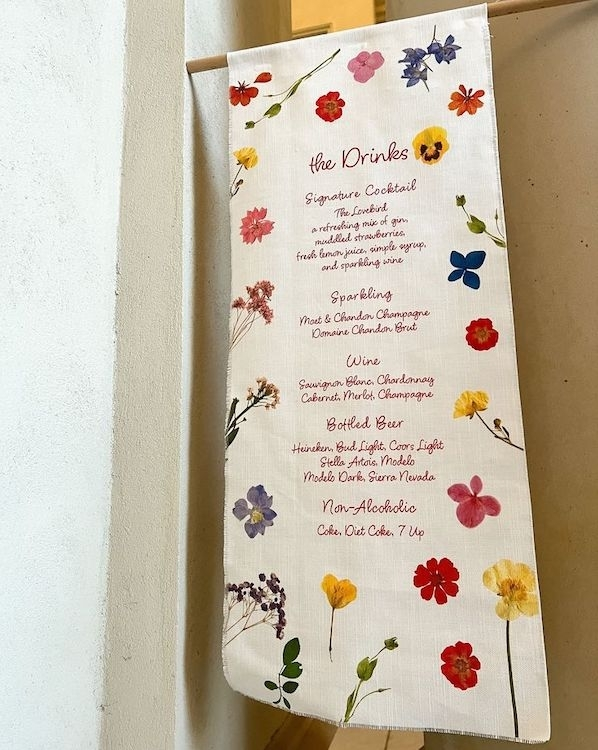 the Drinks
Signature Cocktail
The Lovebird
a refreshing mix of gin,
muddled strawberries,
fresh lemon juice, simple syrup,
and sparkling wine
Sparkling
Moet & Chandon Champagne
Domaine Chandon Brut
Wine
Sauvignon Blanc, Chardonnay
Cabernet, Merlot, Champagne
Bottled Beer
Heineken, Bud Light, Coors Light
Stella Artois, Modelo
Modelo Dark, Sierra Nevada
Non-Alcoholic
Coke, Diet Coke, 7 Up